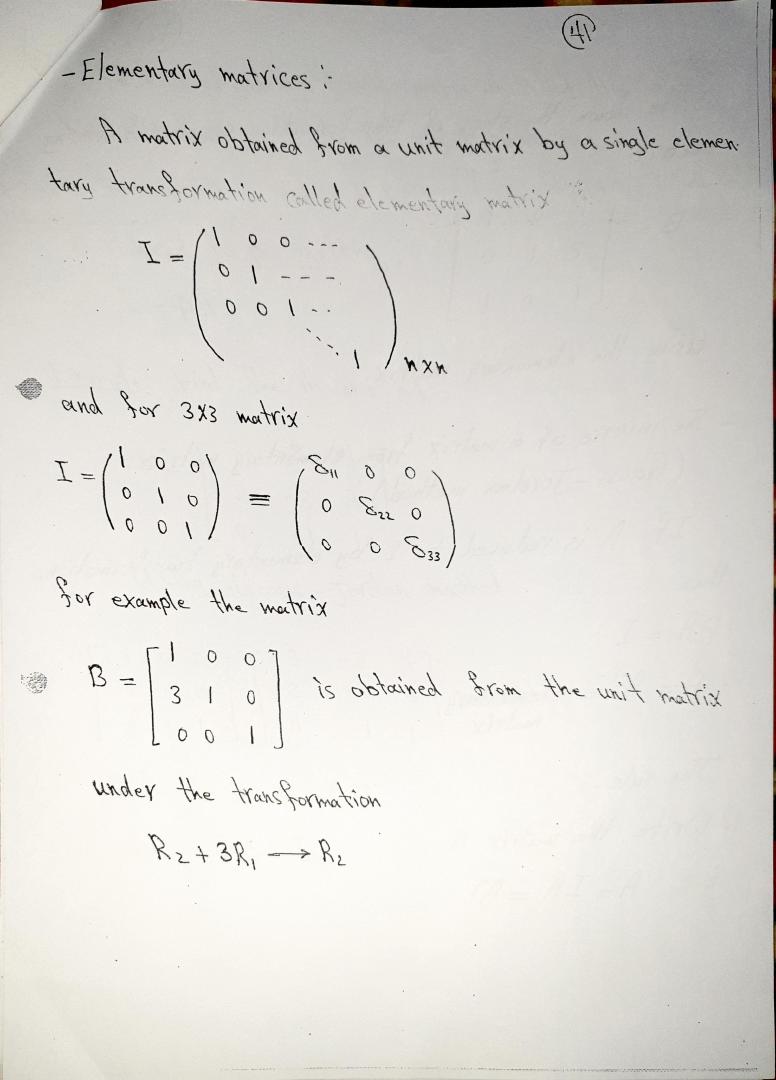 41
- Elementary matrices :-
A matrix obtained from a unit matrix by a single elemen-
tary transformation called elementary matrix
I = ( 1 0 0 ---
0 1 - - - -
0 0 1 - - .
1 ) n×n
and for 3×3 matrix
I = ( 1 0 0
0 1 0
0 0 1 ) ≡ ( δ11 0 0
0 δ22 0
0 0 δ33 )
for example the matrix
B = [ 1 0 0
3 1 0
0 0 1 ] is obtained from the unit matrix
under the transformation
R2 + 3R1 → R2